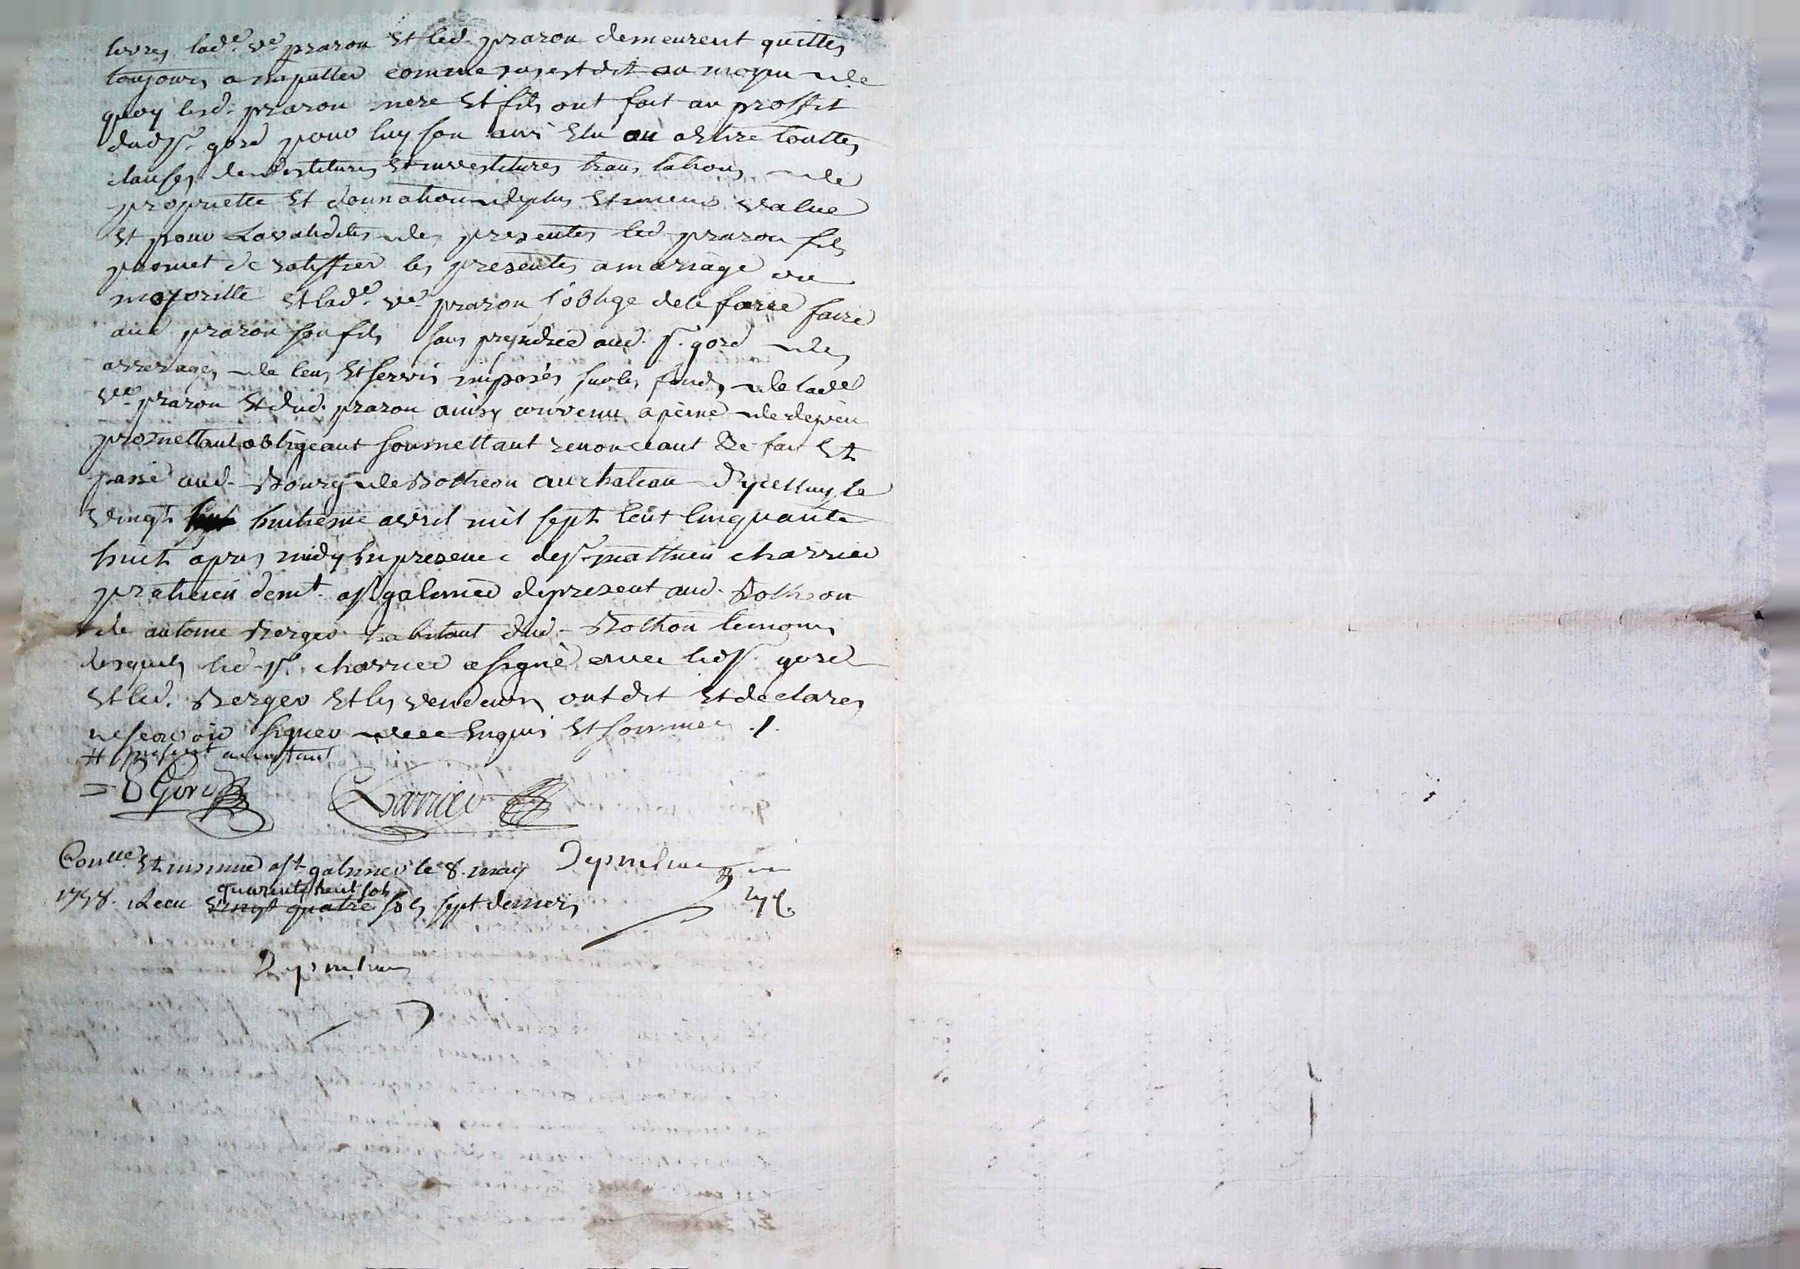 livres lad.e v.e prazon et led. prazon demeurent quittes
toujours a imputter comme sus est dit au moyen de
quoy lesd. prazon mere et fils ont fait au proffit
dud. sr. goré pour luy son ami elu ou a elire touttes
clauses de devestitures et investitures translations de
proprietté et donnation de plus et moins value
et pour la validité des presentes led. prazon fils
promet de ratiffier les presentes a mariage ou
majoritté et lad.e v.e prazon s'oblige de le faire faire
aud prazon son fils sans prejudice aud. sr. goré des
arrerages de cens et servis imposés sur les fonds de lad.e
v.e prazon et dud. prazon ainsy convenu a peine de depens
promettant obligeant soumettant renonceant &c fait et
passé aud. Bourg de Botheon au chateau d'ycelluy le
vingt huitieme avril mil sept cent cinquante
huit apres midy en presence de sr. mathieu charrier
praticien demt. a st galmier de present aud. Botheon
de antoine Berger habitant dud. Bothon temoins
lesquels led. sr. charrier a signé avec led. sr. goré
et led. Berger et les vendeurs ont dit et declarés
ne scavoir signer de ce enquis et sommés ./.
# present acceptant
= Goré Charrier
Con.lle et insinué a st galmier le 8. may
1758. Recu quarente huit sols
vingt quatre sols sept deniers